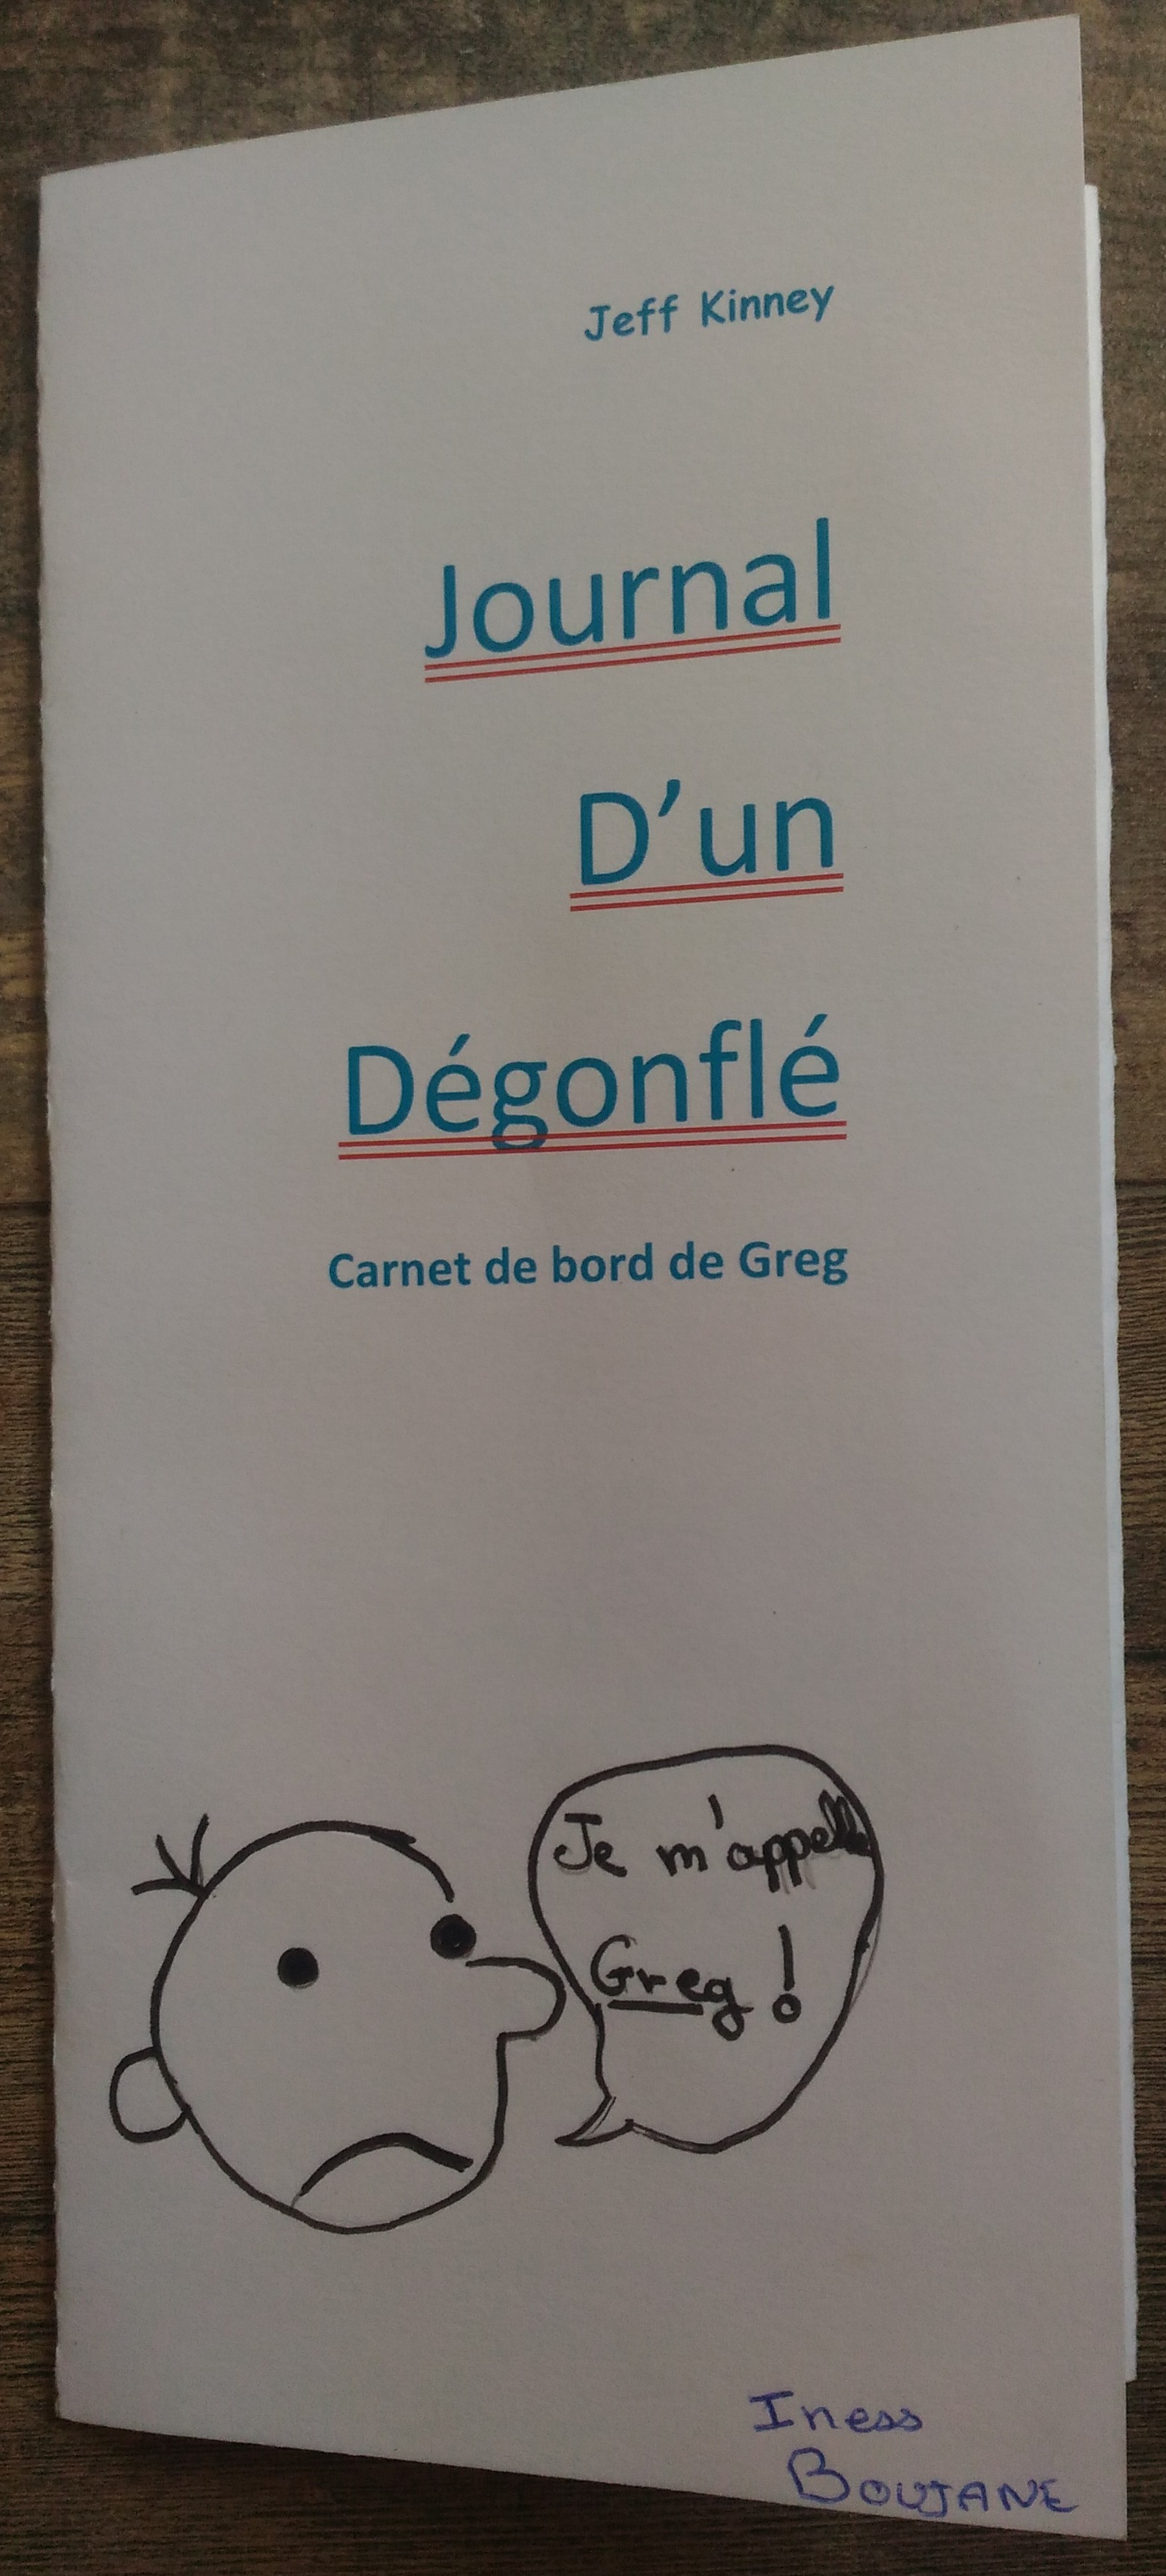 Jeff Kinney
Journal
D'un
Dégonflé
Carnet de bord de Greg
Je m'appelle
Greg !
Iness
BOUJANE